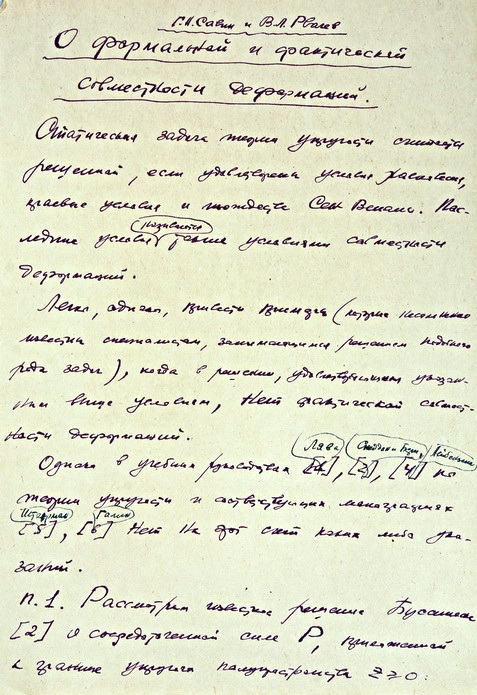 Г.Н. Савин и В.Л. Рвачев
О формальной и фактической
совместности деформаций.
Статическая задача теории упругости считается
решенной, если удовлетворены условия равновесия,
краевые условия и тождества Сен Венана. Пос-
ледние условия называются также условиями совместности
деформаций.
Легко, однако, привести примеры (которые несомненно
известны специалистам, занимающимся решением подобного
рода задач), когда в решении, удовлетворяющем указан-
ным выше условиям, нет фактической совмест-
ности деформаций.
Лява Лейбензон
Однако в учебных руководствах [3], [4] по
теории упругости и соответствующих монографиях
Штаерман Галин
[5], [6] нет на этот счет каких либо ука-
заний.
п.1. Рассмотрим известное решение Буссинеска
[2] о сосредоточенной силе P, приложенной
к границе упругого полупространства z≥0: